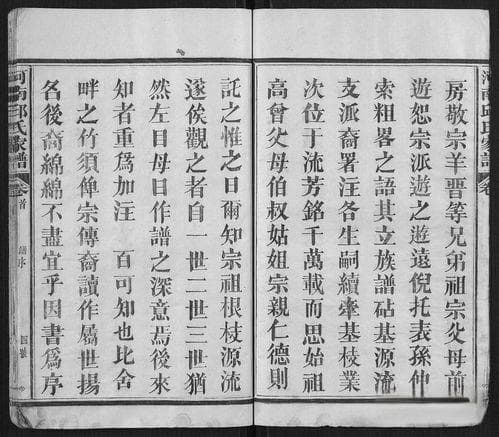 房敬宗羊晋等兄弟祖宗父母前
遊恕宗派遊之遊遠倪托表孫仲
索粗畧之語其立族譜砧基宗
支派裔署注各生嗣續牽基枝業
次位于流芳銘千萬載而思始祖
高曾父母伯叔姑姐宗親仁德則
託之惟之曰爾知宗祖根枝源流
遂俟觀之者自一世二世三世猶
然左目毋曰作譜之深意焉後來
知者重為加注　百可知也比舍
畔之竹須俾宗傳裔讀作屬世揚
名後裔綿綿不盡宜乎因書為序
河南邱氏家譜 卷首 譜序 四